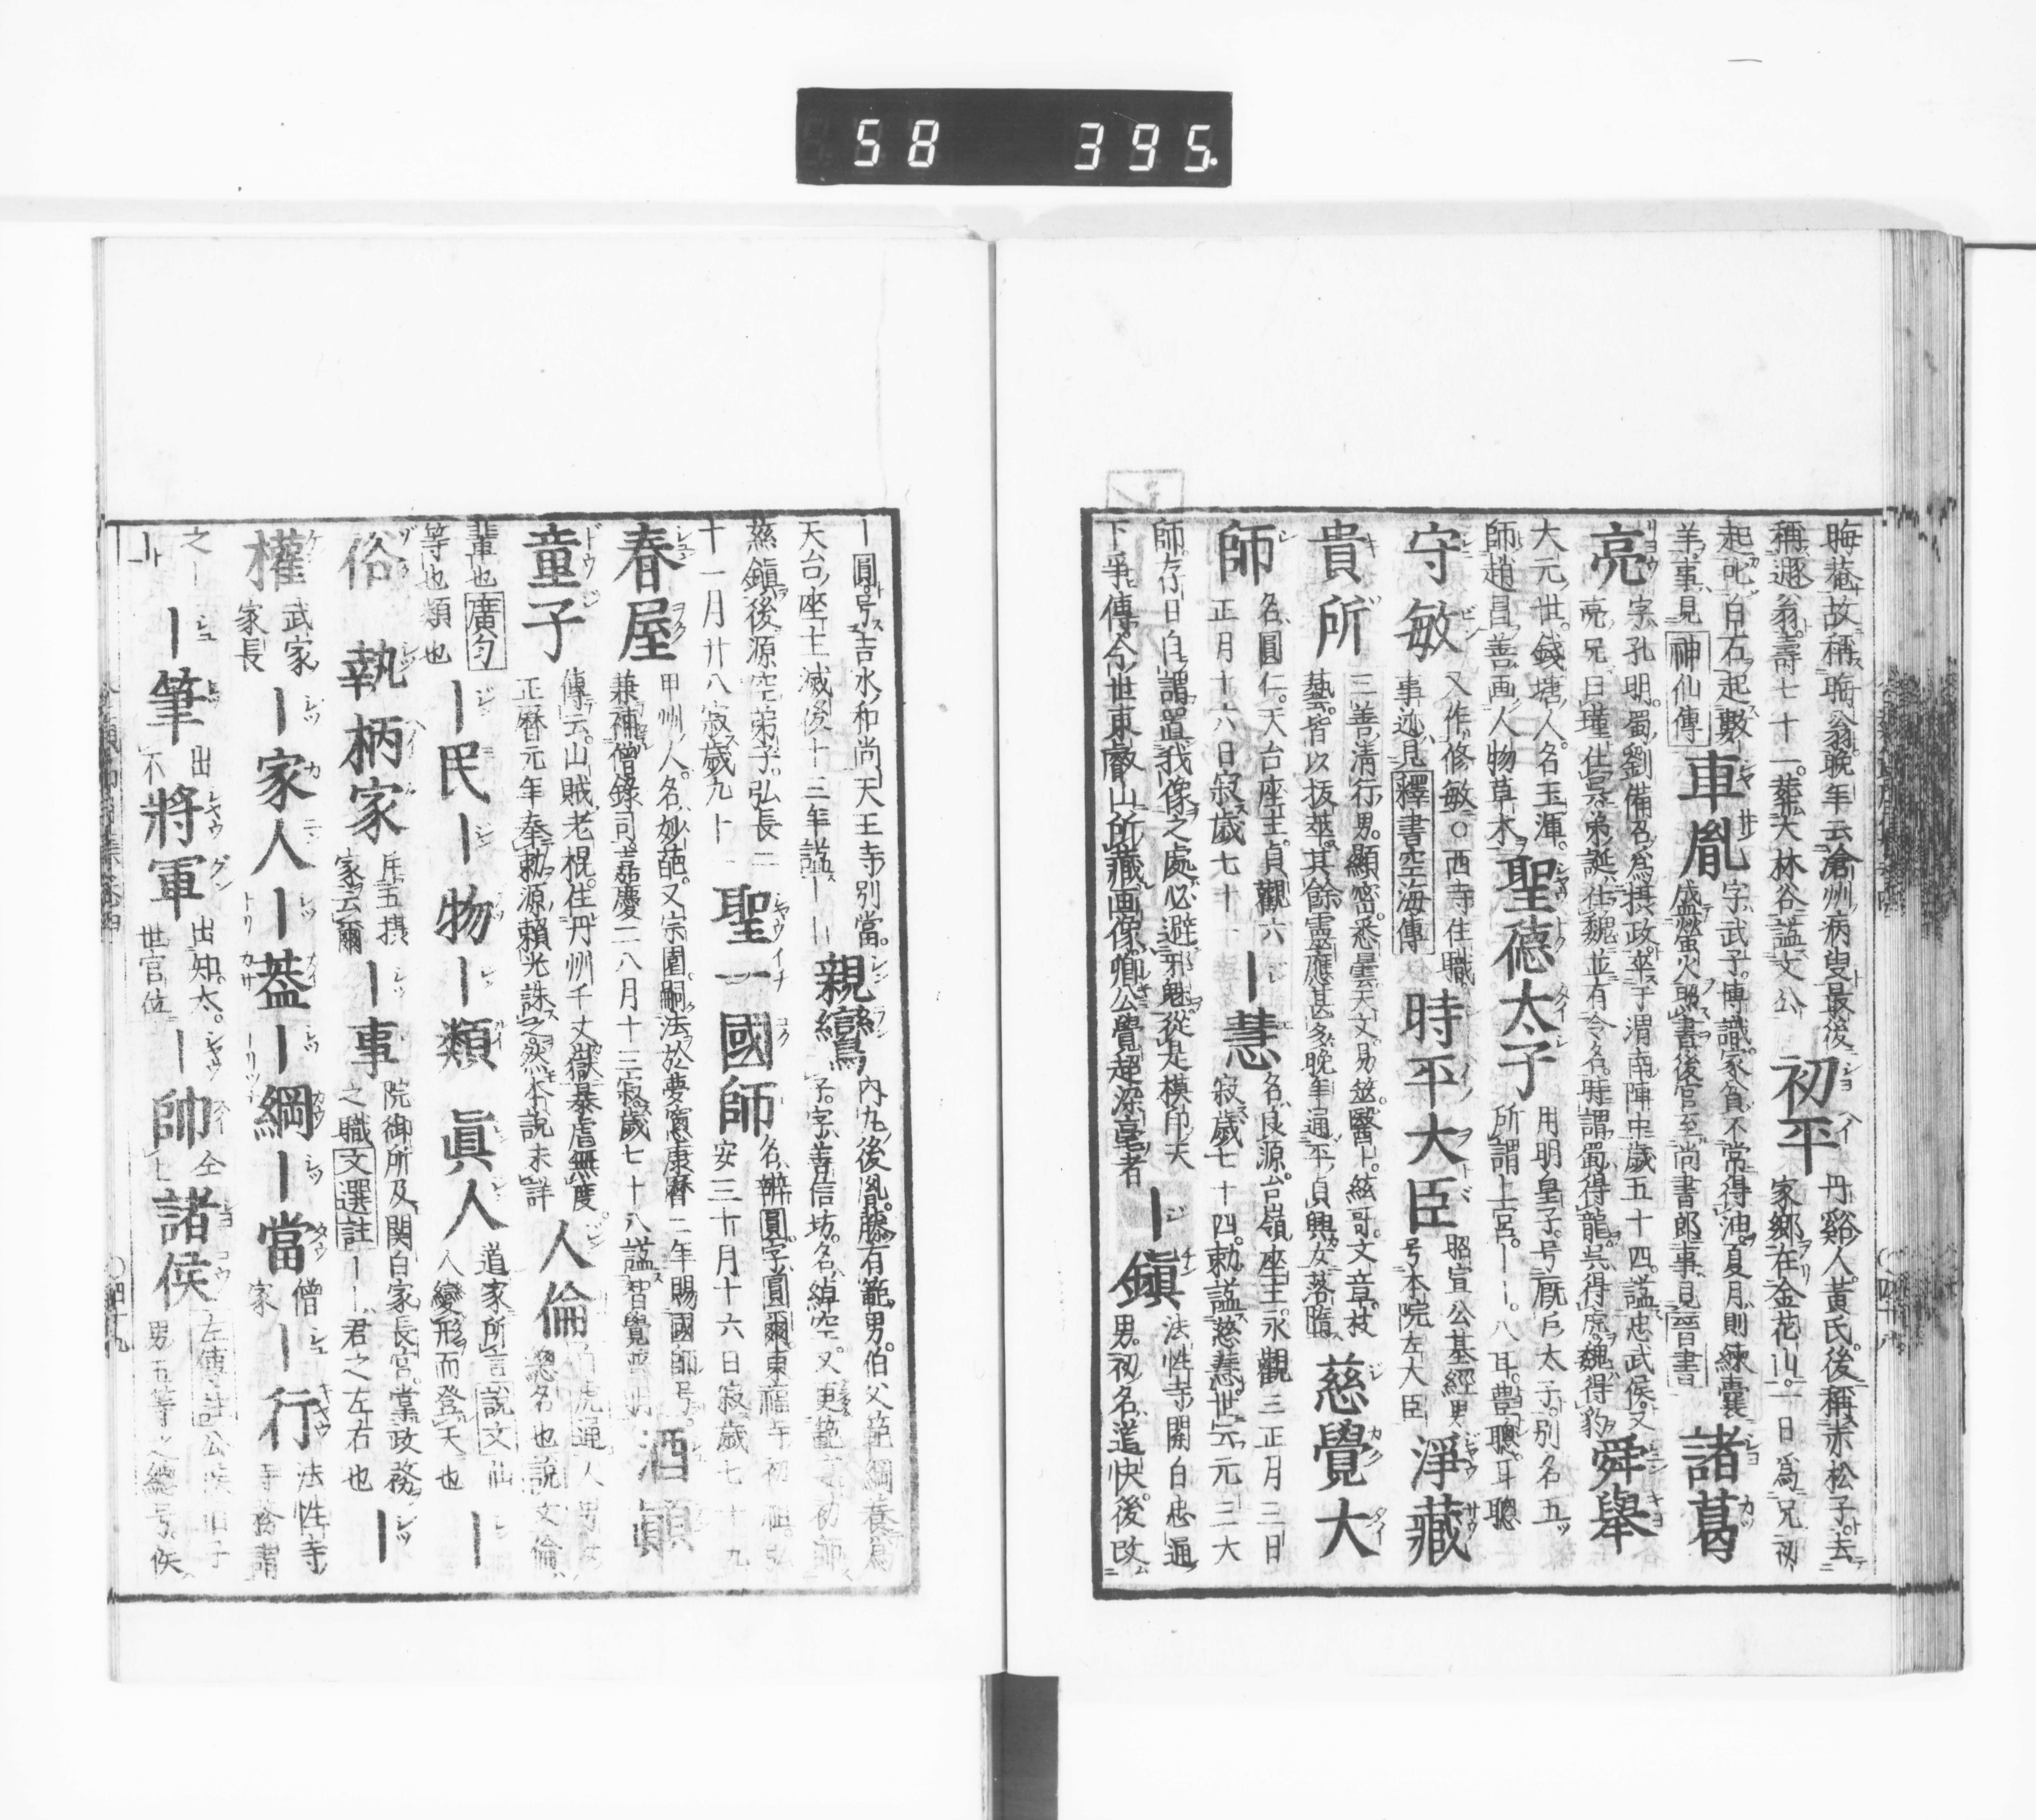 58 395
晦菴故稱晦翁晩年云滄州病叟最後
稱遯翁壽七十一葬大林谷諡文公
初平
丹谿人黃氏後稱赤松子去
家鄉在金花山一日爲兄初
起叱白石起數
羊事見神仙傳
車胤
字武子博識家貧不常得油夏月則練囊
盛螢火照書後官至尚書郎事見晉書
諸葛
亮
字孔明蜀劉備召爲摂政卒于渭南陣中歲五十四諡忠武侯又
亮兄曰瑾仕吳弟誕仕魏並有令名時謂蜀得龍吳得虎魏得豹
舜舉
大元世錢塘人名玉渾
師趙昌善画人物草木
聖德太子
用明皇子号厩戶太子別名五ツ
所謂上宮――八耳豊聰耳聰
守敏
又作修敏○西寺住職
事迹見釋書空海傳
時平大臣
昭宣公基經男
号本院左大臣
淨藏
貴所
三善清行男顯密悉曇天文易筮醫卜絃哥文章技
藝皆以抜萃其餘靈應甚多晩年通平貞興女落隋
慈覺大
師
名圓仁天台座主貞觀六
正月十六日寂歲七十一
―慧
名良源台嶺座主永觀三正月三日
寂歲七十四勅諡慈慧世云元三大
師存日自謂置我像之處必避邪魅從是模印天
下爭傳今世東叡山所藏画像卿公覺超深毫者
―鎭
法性寺關白忠通
男初名道快後改
―圓号吉水和尚天王寺別當
天台座主滅後十三年諡――
慈鎭後源空弟子弘長二
十一月廿八寂歲九十
親鸞
內九後胤藤有範男伯父範綱養爲
子字善信坊名綽空又更範宴初師
聖一國師
名辨圓字圓爾東福寺初祖弘
安三十月十六日寂歲七十九
春屋
甲州人名妙葩又宗園嗣法於夢窻康曆二年賜國師号
兼補僧錄司嘉慶二八月十三寂歲七十八諡智覺普明
酒顚
童子
傳云山賊老棍住丹州千丈嶽暴虐無度
正曆元年奉勅源賴光誅之然本說未詳
人倫
白虎通人男女
總名也說文倫
輩也廣匀
等也類也
―民―物―類
眞人
道家所言說文仙
人變形而登天也
―
俗
執柄家
斥五摂
家云爾
―事
院御所及関白家長官掌政務
之職文選註――君之左右也
―
權
武家
家長
―家人―葢―綱―當
僧
家
―行
法性寺
寺務謂
之―
―筆
出
不
將軍
出知太
世官位
―帥
仝
上
諸侯
左傳註公侯伯子
男五等之總号侯